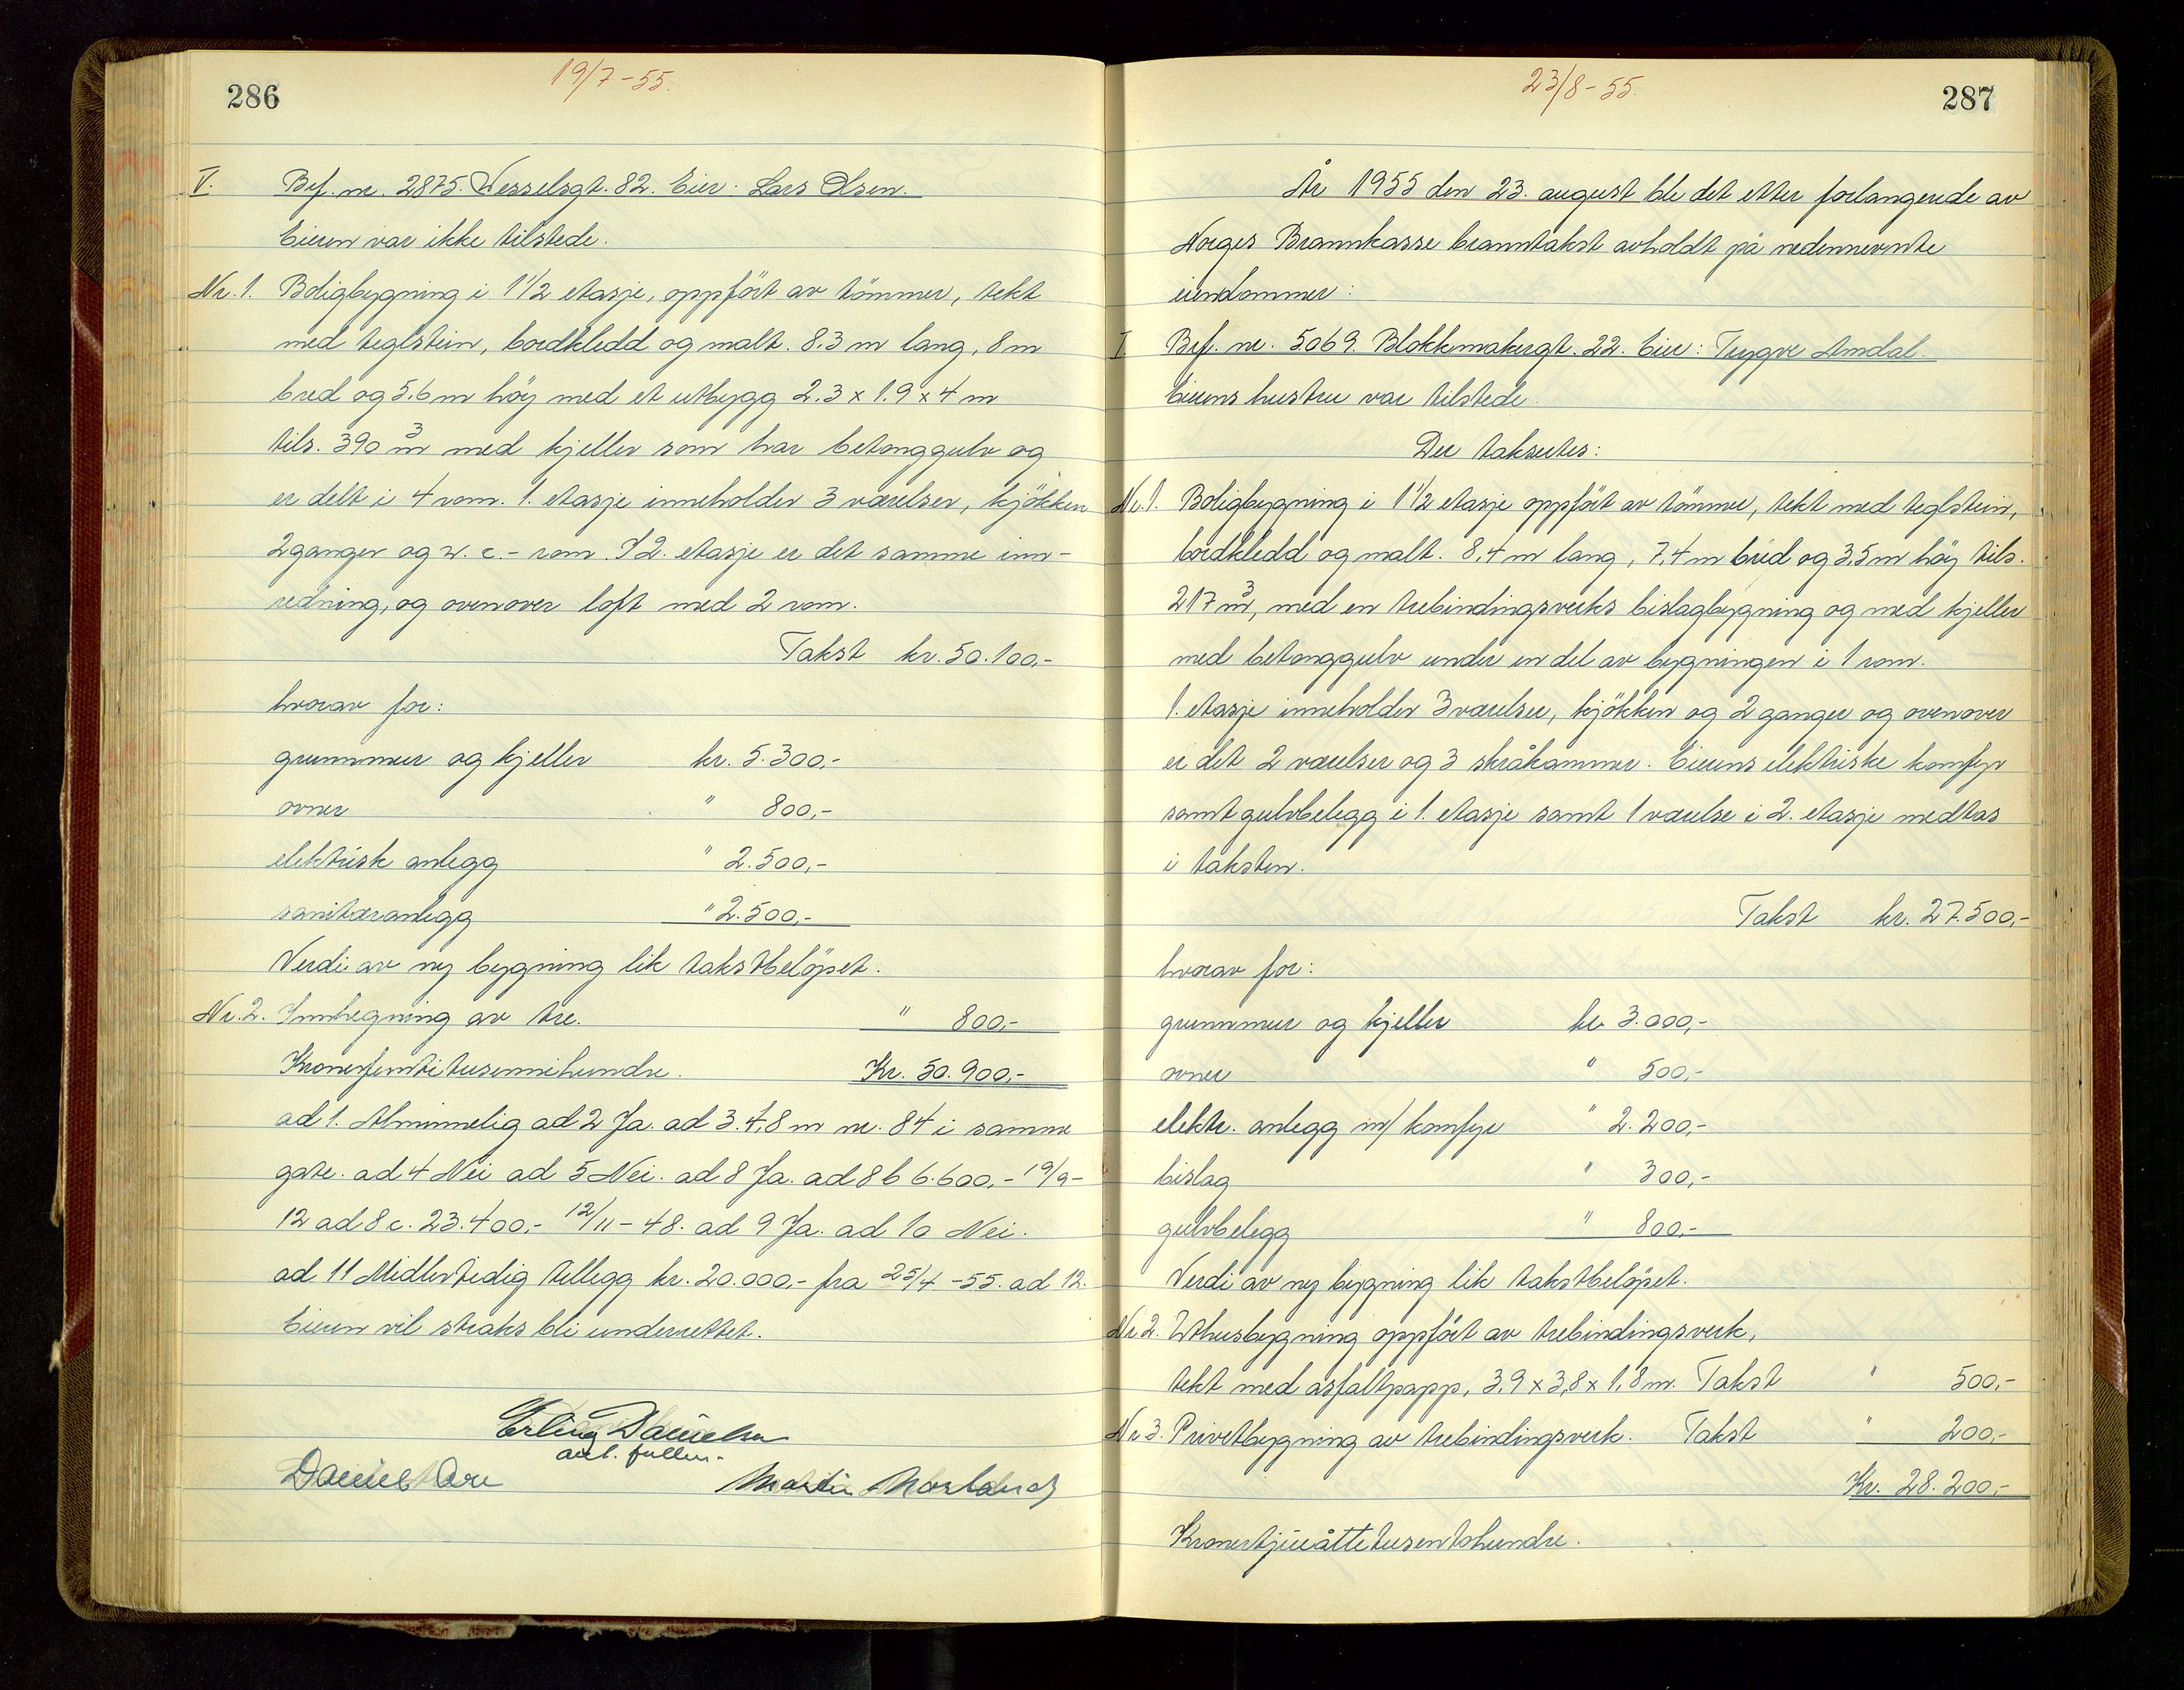 286
19/7-55.
V. Brf. nr. 2875. Wesselsgt. 82. Eier: Lars Olsen.
Eieren var ikke tilstede.
Nr. 1. Boligbygning i 1 1/2 etasje, oppfört av tömmer, tekt
med teglstein, bordkledd og malt. 8.3 m lang, 8 m
bred og 5.6 m höy med et utbygg 2.3 x 1.9 x 4 m
tils. 390 m3 med kjeller som har betonggulv og
er delt i 4 rom. 1. etasje inneholder 3 værelser, kjökken
2 ganger og w.c.- rom. I 2. etasje er det samme inn-
redning, og ovenover loft med 2 rom.
Takst kr. 50.100,-
hvorav for:
grunnmur og kjeller kr. 5.300,-
ovner " 800,-
elektrisk anlegg " 2.500,-
sanitæranlegg " 2.500,-
Verdi av ny bygning lik takstbelöpet.
Nr. 2. Innhegning av tre. " 800,-
Kronerfemtitusennihundre. Kr. 50.900,-
ad 1. Alminnelig ad 2 Ja. ad 3. 4,8 m nr. 84 i samme
gate. ad 4 Nei ad 5 Nei. ad 8 Ja. ad 8 b 6.600,- 19/9-
12 ad 8 c. 23.400,- 12/11-48. ad 9 Ja. ad 10 Nei.
ad 11 Midlertidig tillegg kr. 20.000,- fra 25/4-55. ad 12.
Eieren vil straks bli underrettet.
Erling Danielsen
aut. fullm.
Daniel Are Martin Morland
287
23/8-55.
År 1955 den 23. august ble det etter forlangende av
Norges Brannkasse branntakst avholdt på nedennevnte
eiendommer:
I. Brf. nr. 5069. Blokkmakergt. 22. Eier: Trygve Amdal.
Eierens hustru var tilstede.
Der taksertes:
Nr. 1. Boligbygning i 1 1/2 etasje oppfört av tömmer, tekt med teglstein,
bordkledd og malt. 8,4 m lang, 7,4 m bred og 3,5 m höy tils.
217 m3, med en trebindingsverks bislagbygning og med kjeller
med betonggulv under en del av bygningen i 1 rom.
1. etasje inneholder 3 værelser, kjökken og 2 ganger og ovenover
er det 2 værelser og 3 skråkammer. Eierens elektriske komfyr
samt gulvbelegg i 1. etasje samt 1 værelse i 2. etasje medtas
i taksten.
Takst kr. 27.500,-
hvorav for:
grunnmur og kjeller kr. 3.000,-
ovner " 500,-
elektr. anlegg m/ komfyr " 2.200,-
bislag " 300,-
gulvbelegg " 800,-
Verdi av ny bygning lik takstbelöpet.
Nr 2. Uthusbygning oppfört av trebindingsverk,
tekt med asfaltpapp, 3,9 x 3,8 x 1,8 m. Takst " 500,-
Nr 3. Privetbygning av trebindingsverk. Takst " 200,-
Kr. 28.200,-
Kronertjueåttetusentohundre.